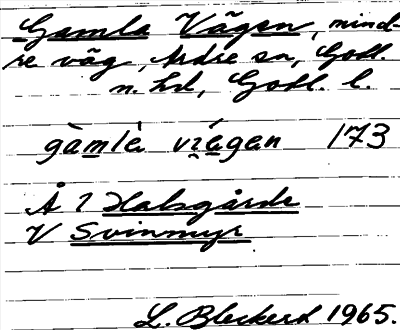 Gamla Vägen, mind-
re väg, Ardre sn, Gotl.
n. hd, Gotl. l.
gàmlè vi̯ágan 173
Å 2 Halsgårde
V Svinmyr
L. Bleckert 1965.